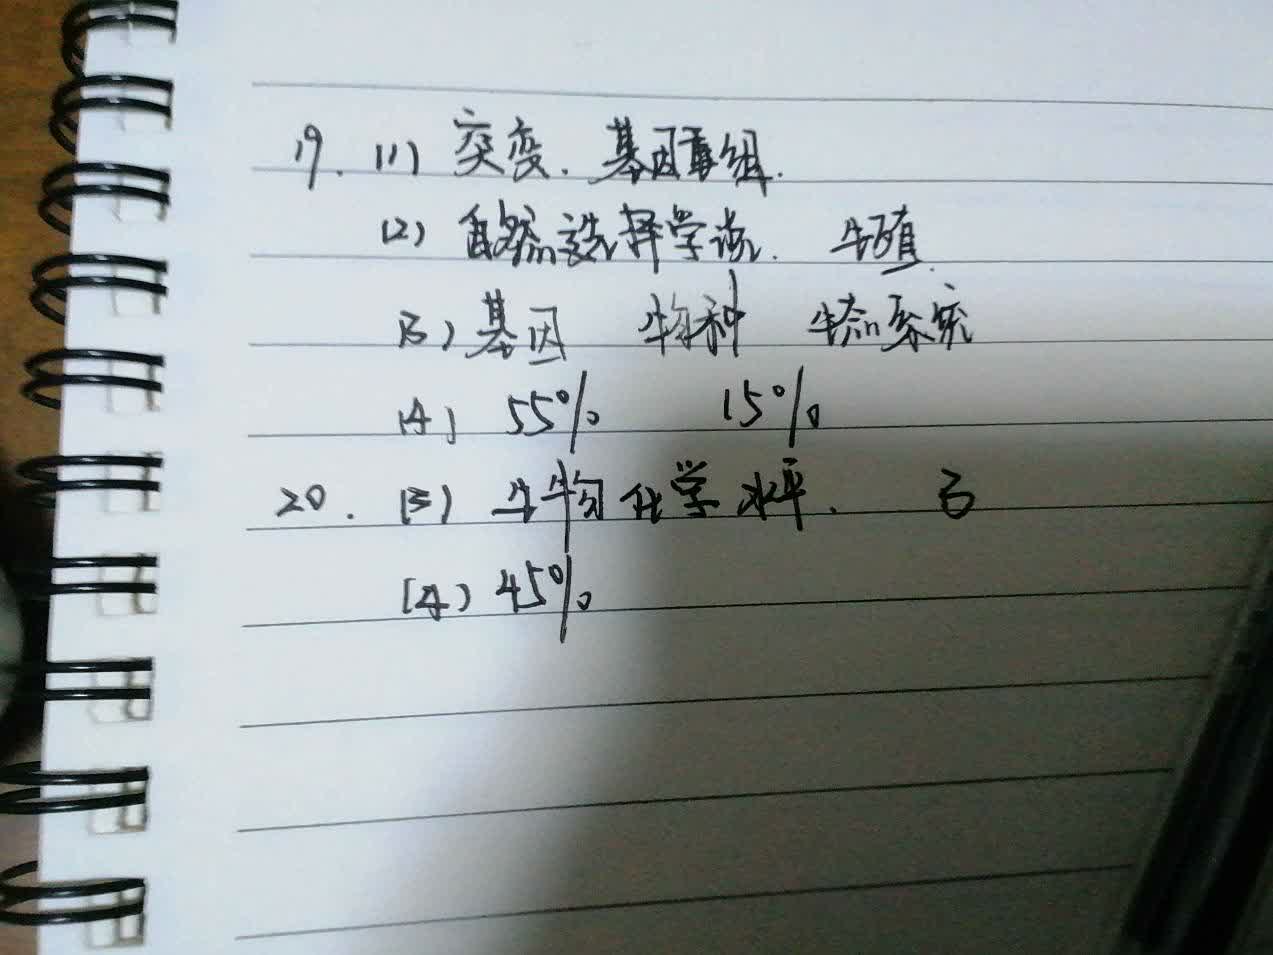 19. (1) 突变. 基因重组.
(2) 自然选择学说. 生殖.
(3) 基因 物种 生态系统
(4) 55% 15%
20. (3) 生物化学水平.
(4) 45%